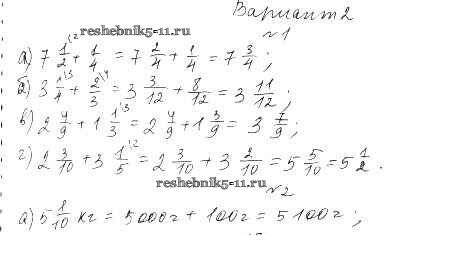 Вариант 2
reshebnik5-11.ru
№1
а) 7 1/2\2 + 1/4 = 7 2/4 + 1/4 = 7 3/4 ;
б) 3 1/4\3 + 2/3\4 = 3 3/12 + 8/12 = 3 11/12 ;
в) 2 4/9 + 1 1/3\3 = 2 4/9 + 1 3/9 = 3 7/9 ;
г) 2 3/10 + 3 1/5\2 = 2 3/10 + 3 2/10 = 5 5/10 = 5 1/2 .
reshebnik5-11.ru
№2
а) 5 1/10 кг = 5000г + 100г = 5100г ;